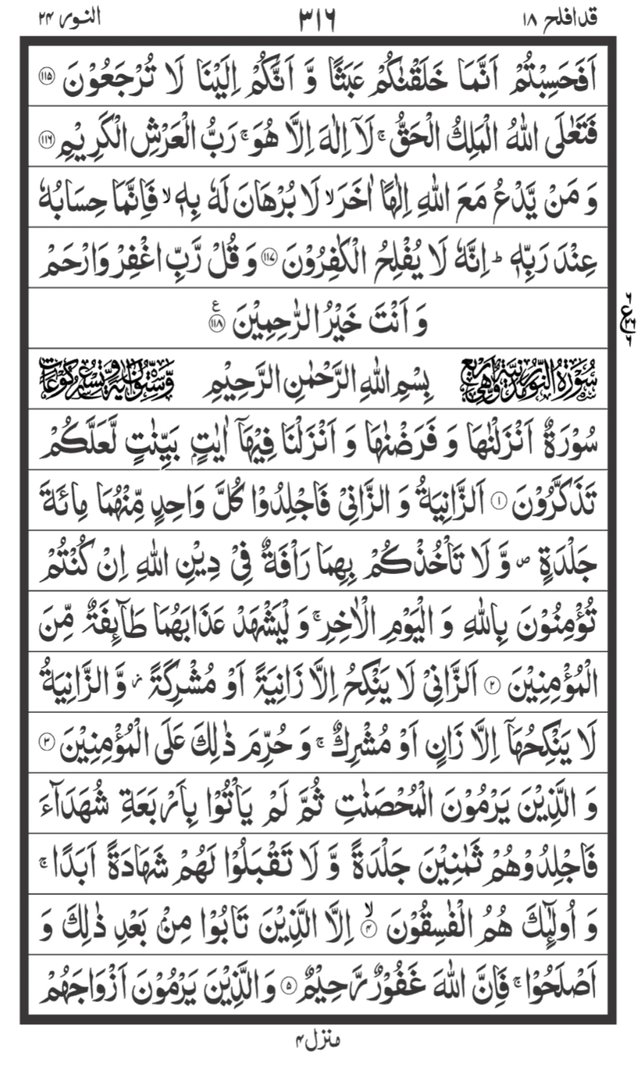 قد افلح ١٨ ٣١٦ النور ٢٤
اَفَحَسِبْتُمْ اَنَّمَا خَلَقْنٰكُمْ عَبَثًا وَّ اَنَّكُمْ اِلَيْنَا لَا تُرْجَعُوْنَ ۝۱۱۵
فَتَعٰلَى اللّٰهُ الْمَلِكُ الْحَقُّ ۚ لَاۤ اِلٰهَ اِلَّا هُوَ ۚ رَبُّ الْعَرْشِ الْكَرِيْمِ ۝۱۱۶
وَ مَنْ يَّدْعُ مَعَ اللّٰهِ اِلٰهًا اٰخَرَ ۙ لَا بُرْهَانَ لَهٗ بِهٖ ۙ فَاِنَّمَا حِسَابُهٗ
عِنْدَ رَبِّهٖ ؕ اِنَّهٗ لَا يُفْلِحُ الْكٰفِرُوْنَ ۝۱۱۷ وَ قُلْ رَّبِّ اغْفِرْ وَارْحَمْ
وَ اَنْتَ خَيْرُ الرّٰحِمِيْنَ ۝۱۱۸ ع
سُوْرَةُ النُّوْرِ مَدَنِيَّةٌ وَّهِيَ اَرْبَعٌ بِسْمِ اللّٰهِ الرَّحْمٰنِ الرَّحِيْمِ وَّسِتُّوْنَ اٰيَةً وَّتِسْعُ رُكُوْعَاتٍ
سُوْرَةٌ اَنْزَلْنٰهَا وَ فَرَضْنٰهَا وَ اَنْزَلْنَا فِيْهَاۤ اٰيٰتٍۭ بَيِّنٰتٍ لَّعَلَّكُمْ
تَذَكَّرُوْنَ ۝۱ اَلزَّانِيَةُ وَ الزَّانِيْ فَاجْلِدُوْا كُلَّ وَاحِدٍ مِّنْهُمَا مِائَةَ
جَلْدَةٍ ۪ وَّ لَا تَاْخُذْكُمْ بِهِمَا رَاْفَةٌ فِيْ دِيْنِ اللّٰهِ اِنْ كُنْتُمْ
تُؤْمِنُوْنَ بِاللّٰهِ وَ الْيَوْمِ الْاٰخِرِ ۚ وَ لْيَشْهَدْ عَذَابَهُمَا طَآئِفَةٌ مِّنَ
الْمُؤْمِنِيْنَ ۝۲ اَلزَّانِيْ لَا يَنْكِحُ اِلَّا زَانِيَةً اَوْ مُشْرِكَةً ؗ وَّ الزَّانِيَةُ
لَا يَنْكِحُهَاۤ اِلَّا زَانٍ اَوْ مُشْرِكٌ ۚ وَ حُرِّمَ ذٰلِكَ عَلَى الْمُؤْمِنِيْنَ ۝۳
وَ الَّذِيْنَ يَرْمُوْنَ الْمُحْصَنٰتِ ثُمَّ لَمْ يَاْتُوْا بِاَرْبَعَةِ شُهَدَآءَ
فَاجْلِدُوْهُمْ ثَمٰنِيْنَ جَلْدَةً وَّ لَا تَقْبَلُوْا لَهُمْ شَهَادَةً اَبَدًا ۚ
وَ اُولٰٓئِكَ هُمُ الْفٰسِقُوْنَ ۝۴ۙ اِلَّا الَّذِيْنَ تَابُوْا مِنْۢ بَعْدِ ذٰلِكَ وَ
اَصْلَحُوْا ۚ فَاِنَّ اللّٰهَ غَفُوْرٌ رَّحِيْمٌ ۝۵ وَ الَّذِيْنَ يَرْمُوْنَ اَزْوَاجَهُمْ
منزل ۴